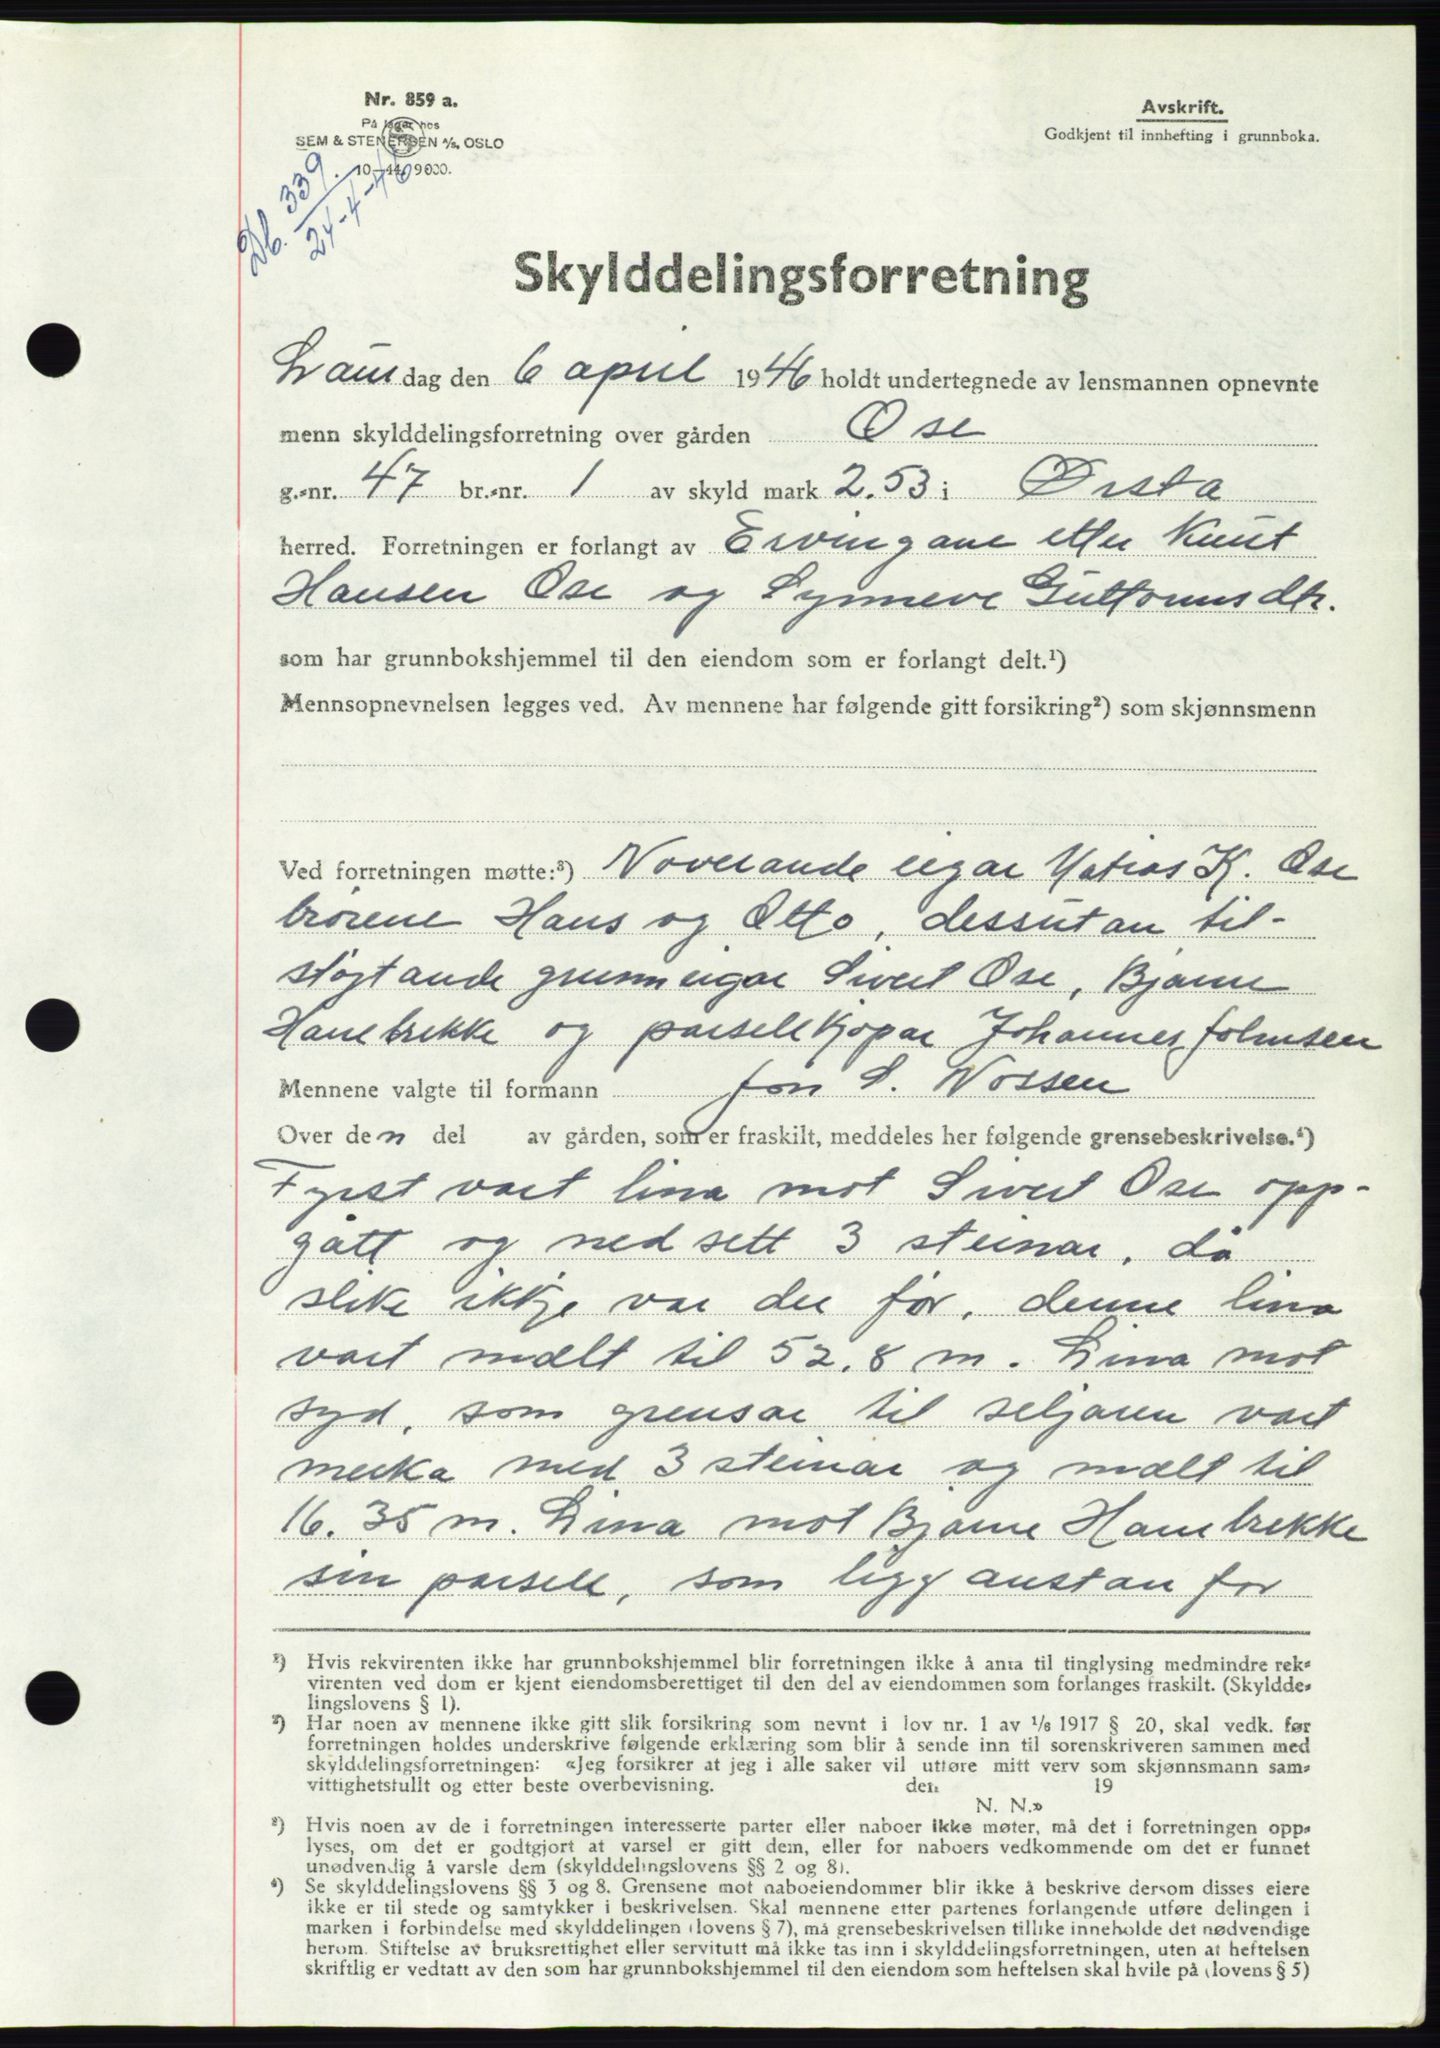 Nr. 859 a.
På lager hos
SEM & STENERSEN A/S, OSLO
10—44. 9000.
Db. 339.
24-4-46
Avskrift.
Godkjent til innhefting i grunnboka.
Skylddelingsforretning
Laurdag den 6 april 1946 holdt undertegnede av lensmannen opnevnte
menn skylddelingsforretning over gården Ose
g.-nr. 47 br.-nr. 1 av skyld mark 2.53 i Ørsta
herred. Forretningen er forlangt av Ervingane etter Knut
Hansen Ose og Synneve Guttormsdtr.
som har grunnbokshjemmel til den eiendom som er forlangt delt.¹)
Mennsopnevnelsen legges ved. Av mennene har følgende gitt forsikring²) som skjønnsmenn
Ved forretningen møtte:³) Noverande eigar Matias K. Ose
brørene Hans og Otto, dessutan til-
støytande grunneigar Sivert Ose, Bjarne
Hanebrekke og parsellkjøpar Johannes Johnsen
Mennene valgte til formann Jon S. Nossen
Over den del av gården, som er fraskilt, meddeles her følgende grensebeskrivelse.⁴)
Fyrst vart lina mot Sivert Ose opp-
gått og nedsett 3 steinar, då
slike ikkje var der før, denne lina
vart mælt til 52.8 m. Lina mot
syd, som grensar til seljaren vart
merka med 3 steinar og mælt til
16.35 m. Lina mot Bjarne Hanebrekke
sin parsell, som ligg austan for
¹) Hvis rekvirenten ikke har grunnbokshjemmel blir forretningen ikke å anta til tinglysing medmindre rek-
virenten ved dom er kjent eiendomsberettiget til den del av eiendommen som forlanges fraskilt. (Skyldde-
lingslovens § 1).
²) Har noen av mennene ikke gitt slik forsikring som nevnt i lov nr. 1 av 1/6 1917 § 20, skal vedk. før
forretningen holdes underskrive følgende erklæring som blir å sende inn til sorenskriveren sammen med
skylddelingsforretningen: «Jeg forsikrer at jeg i alle saker vil utføre mitt verv som skjønnsmann sam-
vittighetsfullt og etter beste overbevisning. den 19
N. N.»
³) Hvis noen av de i forretningen interesserte parter eller naboer ikke møter, må det i forretningen opp-
lyses, om det er godtgjort at varsel er gitt dem, eller for naboers vedkommende om det er funnet
unødvendig å varsle dem (skylddelingslovens §§ 2 og 8).
⁴) Se skylddelingslovens §§ 3 og 8. Grensene mot naboeiendommer blir ikke å beskrive dersom disses eiere
ikke er til stede og samtykker i beskrivelsen. Skal mennene etter partenes forlangende utføre delingen i
marken i forbindelse med skylddelingen (lovens § 7), må grensebeskrivelsen tillike inneholde det nødvendige
herom. Stiftelse av bruksrettighet eller servitutt må ikke tas inn i skylddelingsforretningen, uten at heftelsen
skriftlig er vedtatt av den som har grunnbokshjemmel til den eiendom som heftelsen skal hvile på (lovens § 5)